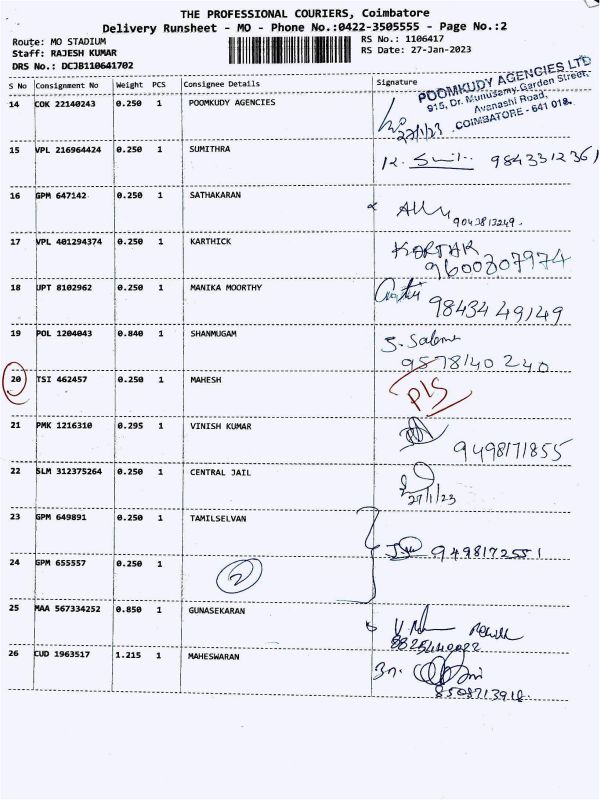 THE PROFESSIONAL COURIERS, Coimbatore
Delivery Runsheet - MO - Phone No.:0422-3505555 - Page No.:2
Route: MO STADIUM
Staff: RAJESH KUMAR
DRS No.: DCJB110641702
RS No.: 1106417
RS Date: 27-Jan-2023
S No Consignment No Weight PCS Consignee Details Signature
POOMKUDY AGENCIES LTD
915, Dr. Munusamy Garden Street,
Avanashi Road,
COIMBATORE - 641 018.
14 COK 22140243 0.250 1 POOMKUDY AGENCIES
27/1/23
15 VPL 216964424 0.250 1 SUMITHRA
9843312361
16 GPM 647142 0.250 1 SATHAKARAN
9043813249.
17 VPL 401294374 0.250 1 KARTHICK
9600207974
18 UPT 8102962 0.250 1 MANIKA MOORTHY
9843449149
19 POL 1204043 0.840 1 SHANMUGAM
9578140240
20 TSI 462457 0.250 1 MAHESH
P/S
21 PMK 1216310 0.295 1 VINISH KUMAR
9498171855
22 SLM 312375264 0.250 1 CENTRAL JAIL
27/1/23
23 GPM 649891 0.250 1 TAMILSELVAN
9498172551
24 GPM 655557 0.250 1
2
25 MAA 567334252 0.850 1 GUNASEKARAN
26 CUD 1963517 1.215 1 MAHESWARAN
8508713918.